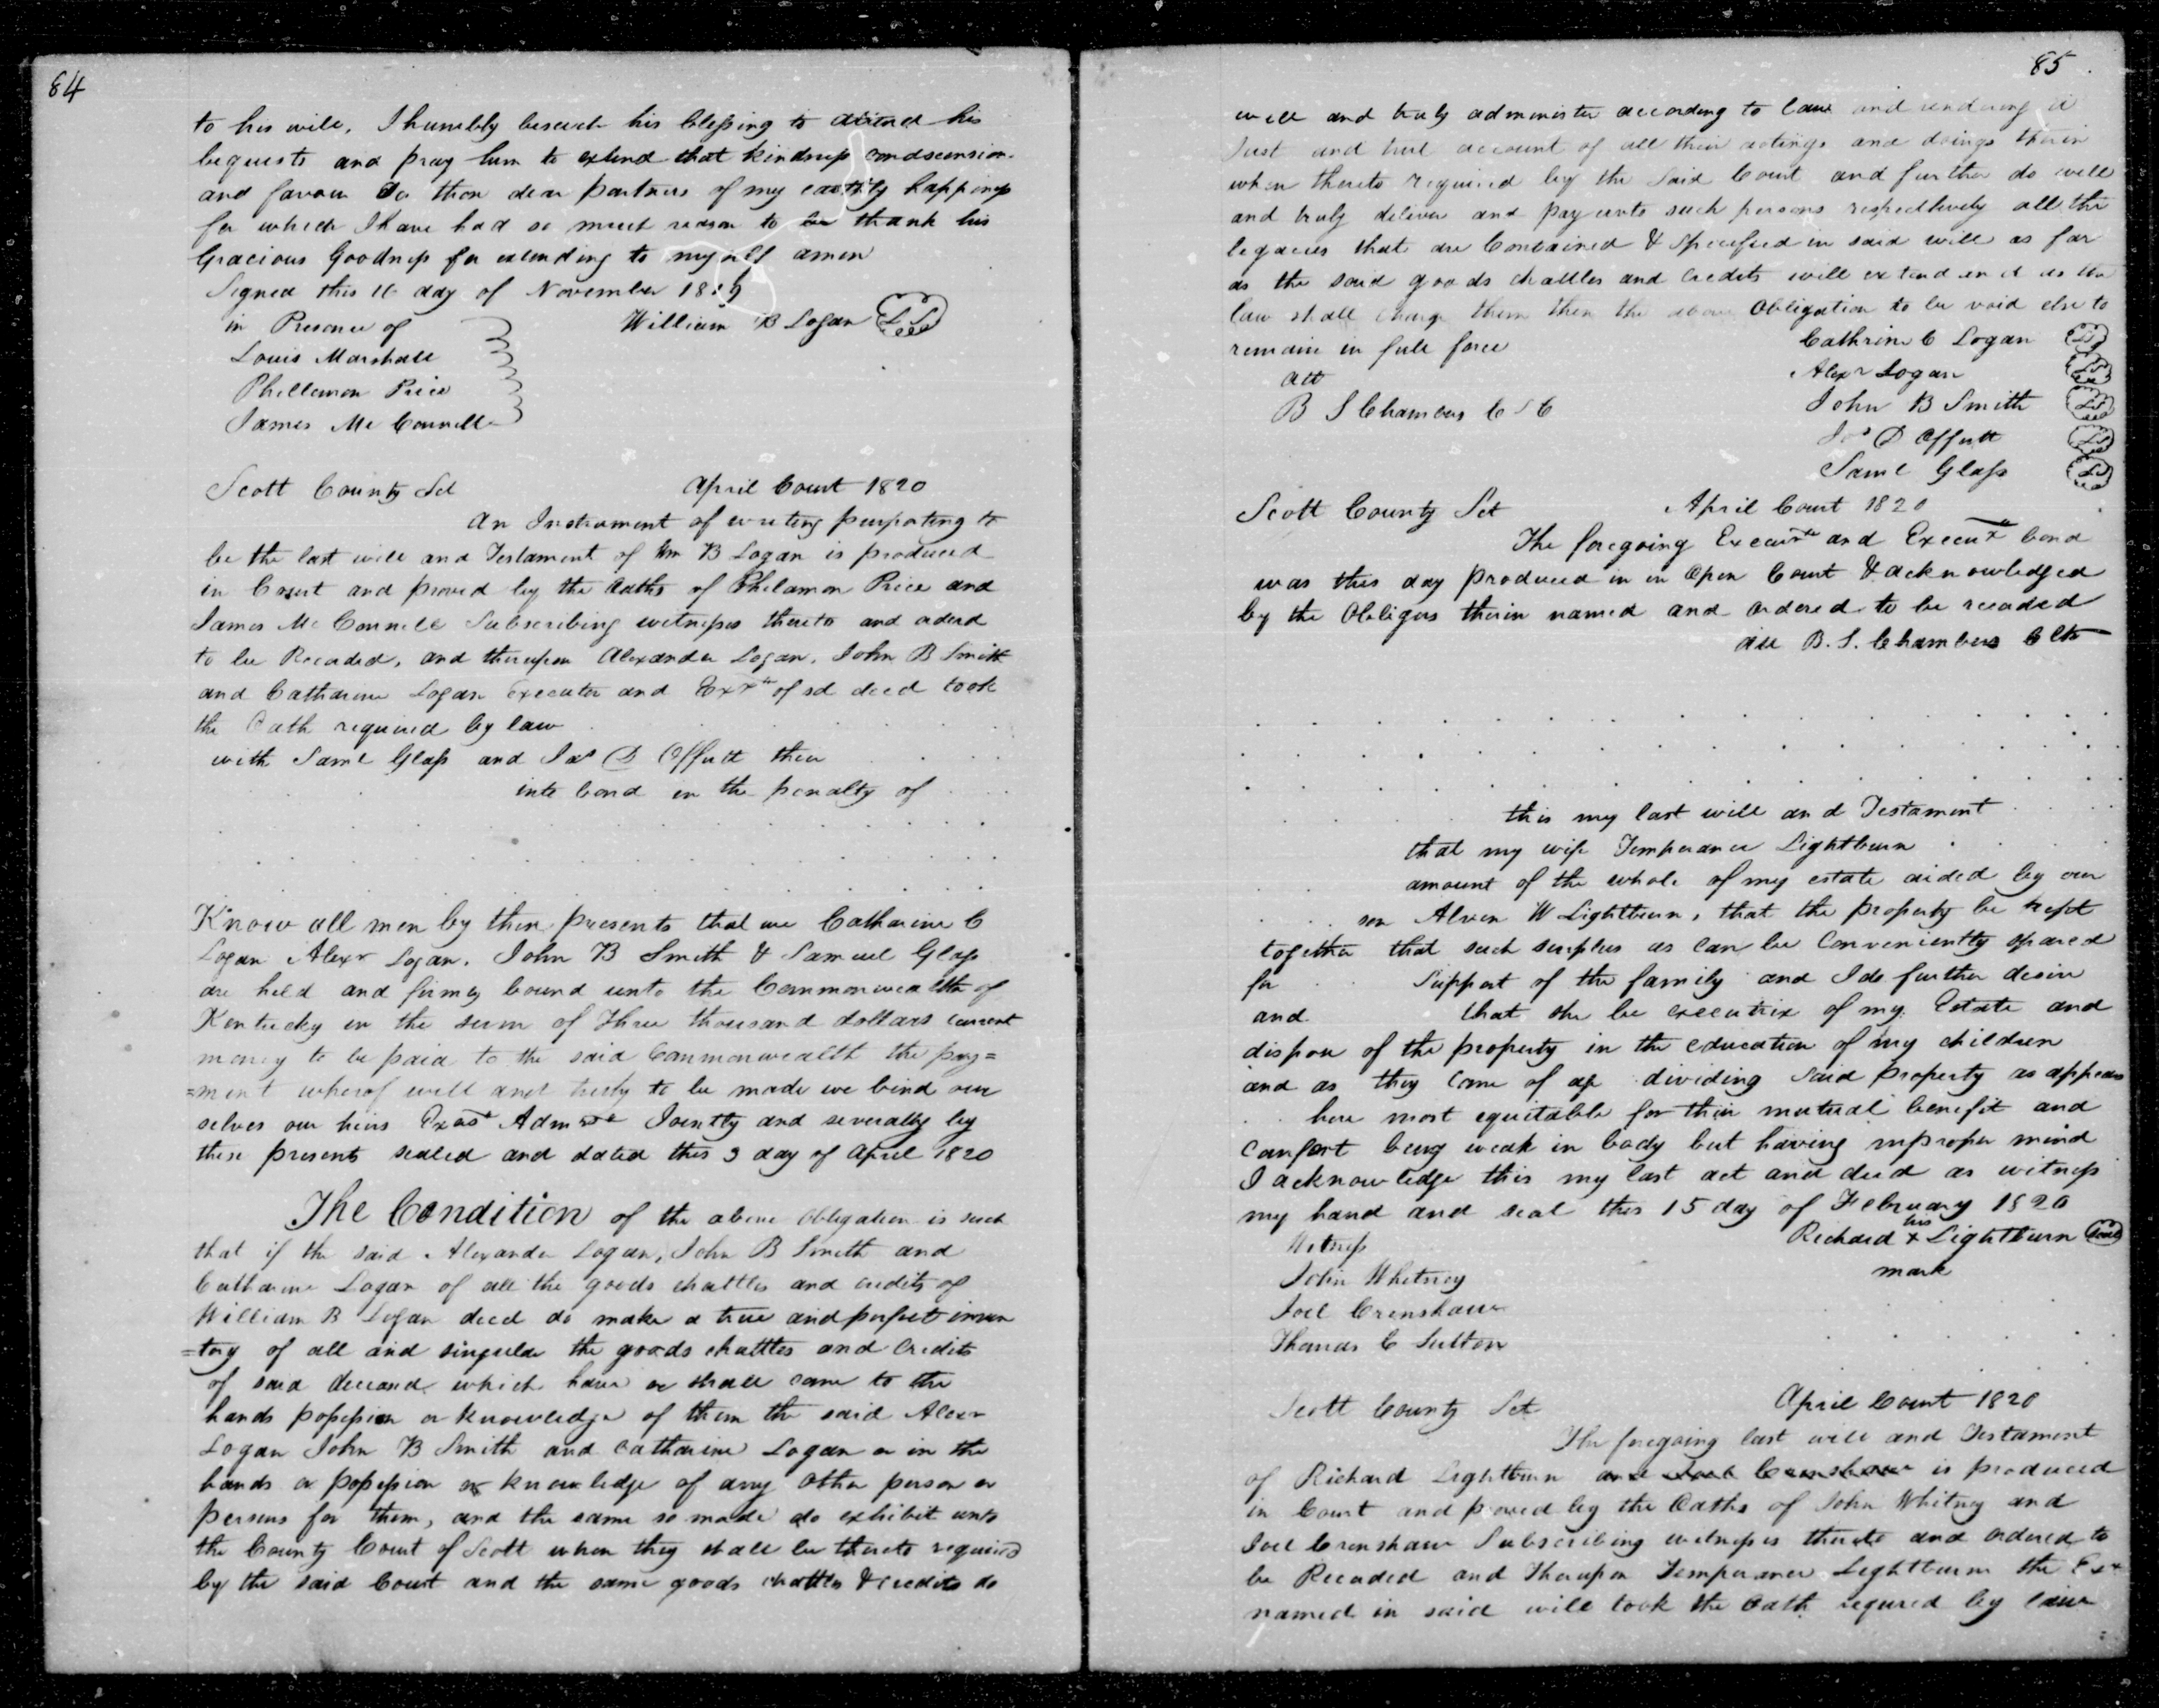 84
to his will, I humbly beseech his blessing to attend his
bequests and pray him to extend that kindness condscension
and favour to those dear partners of my earthly happiness
for which I have had so much reason to thank his
Gracious Goodness for extending to myself amen
Signed this 16 day of November 1819
in Presence of
William B Logan LS
Louis Marshall
Phillemon Price
James Mc Connell
Scott County Sct April Court 1820
An Instrument of writing purporting to
be the last will and Testament of Wm B Logan is produced
in Court and proved by the Oaths of Philamon Price and
James Mc Connell Subscribing witnesses thereto and orderd
to be Recorded, and thereupon Alexander Logan, John B Smith
and Catharine Logan Executor and Exrx of sd decd took
the Oath required by law
with Saml Glass and Jas D Offutt their
into bond in the penalty of
Know all men by these presents that we Catharine C
Logan Alexr Logan, John B Smith & Samuel Glass
are held and firmly bound unto the Commonwealth of
Kentucky in the sum of Three thousand dollars current
money to be paid to the said Commonwealth the pay=
=ment wherof well and truly to be made we bind our
selves our heirs Exors Admrs Jointly and severally by
these presents sealed and dated this 3 day of April 1820
The Condition of the above obligation is such
that if the said Alexander Logan, John B Smith and
Catharine Logan of all the goods chattles and credits of
William B Logan decd do make a true and perfect inven
=tory of all and singular the goods chattles and Credits
of said deceasd which have or shall come to the
hands possession or knowledge of them the said Alexr
Logan John B Smith and Catharine Logan or in the
hands or possession or knowledge of any other person or
persons for them, and the same so made do exhibit unto
the County Court of Scott when they shall be thereto required
by the said Court and the same goods chattles & credits do
85
well and truly administer according to law and rendering a
Just and true account of all their actings and doings therin
when thereto required by the said Court and further do well
and truly deliver and pay unto such persons respectively all the
legacies that are Contained & Specified in said will as far
as the said goods chattles and credits will extend and as the
law shall charge them then the above Obligation to be void else to
remain in full force
Cathrine C Logan LS
Att
Alexr Logan LS
B S Chambers C S C
John B Smith LS
Jas D Offutt LS
Saml Glass LS
Scott County Sct April Court 1820
The foregoing Execurs and Execux bond
was this day produced in in Open Court & acknowledged
by the Obligors therin named and ordered to be recorded
Att B. S. Chambers Clk
this my last will and Testament
that my wife Temperance Lightburn
amount of the whole of my estate aided by our
son Alven W Lightburn, that the property be kept
together that such surplus as can be Conveniently spared
for Support of the family and I do further desire
and that she be executrix of my Estate and
dispose of the property in the education of my children
and as they come of age dividing said property as appears
here most equitable for their mutual benefit and
comfort being weak in body but having inproper mind
I acknowledge this my last act and deed as witness
my hand and seal this 15 day of February 1820
Witness
Richard his x mark Lightburn Seal
John Whitney
Joel Crenshaw
Thomas C Sutton
Scott County Sct April Court 1820
The foregoing last will and Testament
of Richard Lightburn and Joel Crenshaw is produced
in Court and proved by the Oaths of John Whitney and
Joel Crenshaw Subscribing witnesses thereto and ordered to
be Recorded and Thereupon Temperance Lightburn the Exx
named in said will took the Oath requred by law